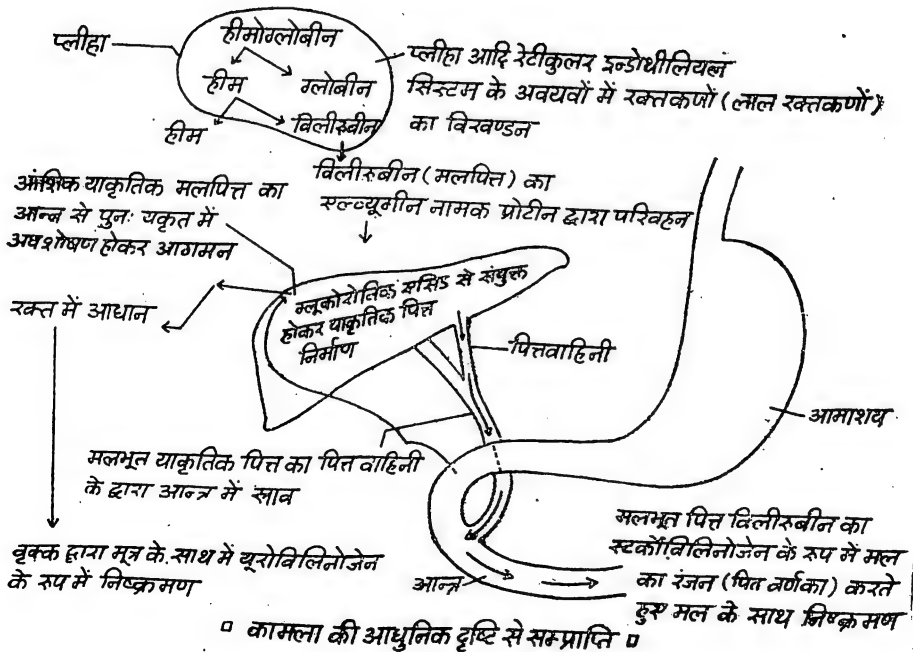 प्लीहा
हीमोग्लोबीन
हीम
ग्लोबीन
हीम
विलीरूबीन
प्लीहा आदि रेटीकुलर इन्डोथीलियल
सिस्टम के अवयवों में रक्तकणों (लाल रक्तकणों)
का विखण्डन
विलीरूबीन (मलपित्त) का
एल्व्यूमीन नामक प्रोटीन द्वारा परिवहन
आंशिक याकृतिक मलपित्त का
आन्त्र से पुनः यकृत में
अवशोषण होकर आगमन
रक्त में आधान
ग्लूकोरोनिक एसिड से संयुक्त
होकर याकृतिक पित्त
निर्माण
पित्तवाहिनी
आमाशय
मलभूत याकृतिक पित्त का पित्त वाहिनी
के द्वारा आन्त्र में स्राव
वृक्क द्वारा मूत्र के साथ में यूरोविलिनोजेन
के रूप में निष्क्रमण
आन्त्र
मलभूत पित्त विलीरूबीन का
स्टर्कोविलिनोजेन के रूप में मल
का रंजन (पित वर्णका) करते
हुए मल के साथ निष्क्रमण
▫ कामला की आधुनिक दृष्टि से सम्प्राप्ति ▫